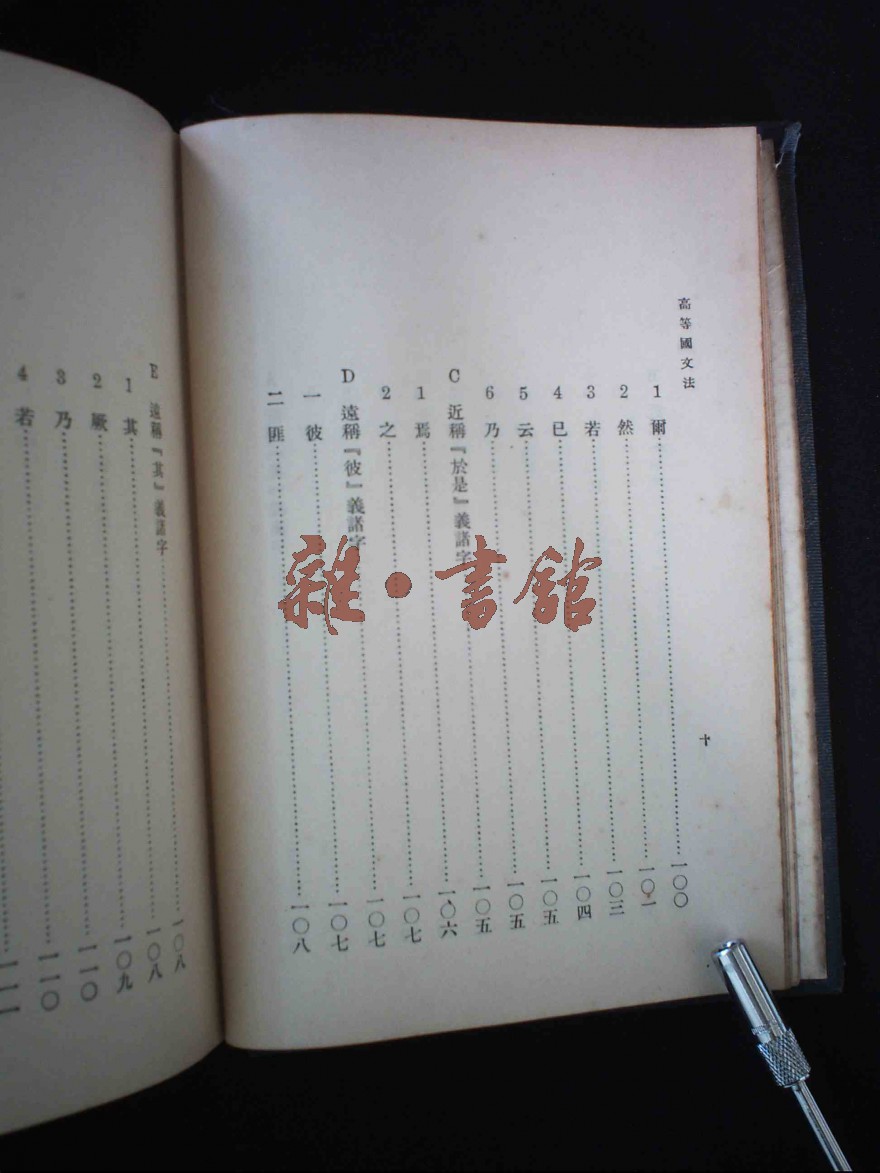 高等國文法
十
1 爾……一〇〇
2 然……一〇一
3 若……一〇三
4 已……一〇四
5 云……一〇五
6 乃……一〇五
C 近稱『於是』義諸字……一〇五
1 焉……一〇六
2 之……一〇七
D 遠稱『彼』義諸字……一〇七
一 彼……一〇七
二 匪……一〇八
E 遠稱『其』義諸字……一〇八
1 其……一〇八
2 厥……一〇九
3 乃……一一〇
4 若……一一〇
一一一
雜·書館